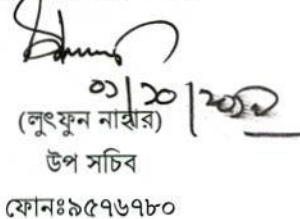 ০১|১০|২০১৯
(লুৎফুন নাহার)
উপ সচিব
ফোনঃ৯৫৭৬৭৮০